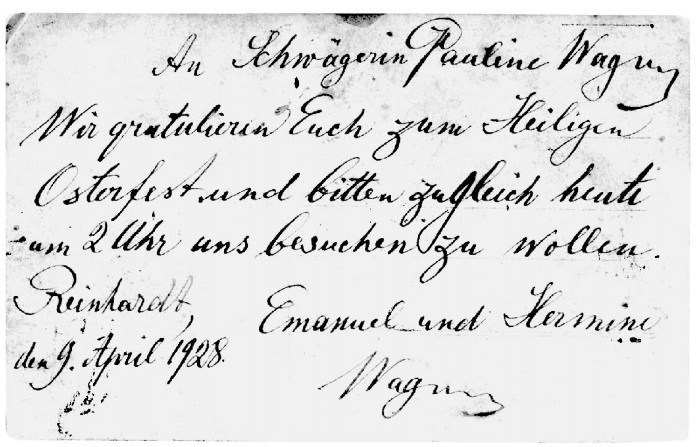 An Schwägerin Pauline Wagner
Wir gratulieren Euch zum Heiligen
Osterfest und bitten zugleich heute
um 2 Uhr uns besuchen zu wollen.
Reinhardt, Emanuel und Hermine
den 9. April 1928. Wagner